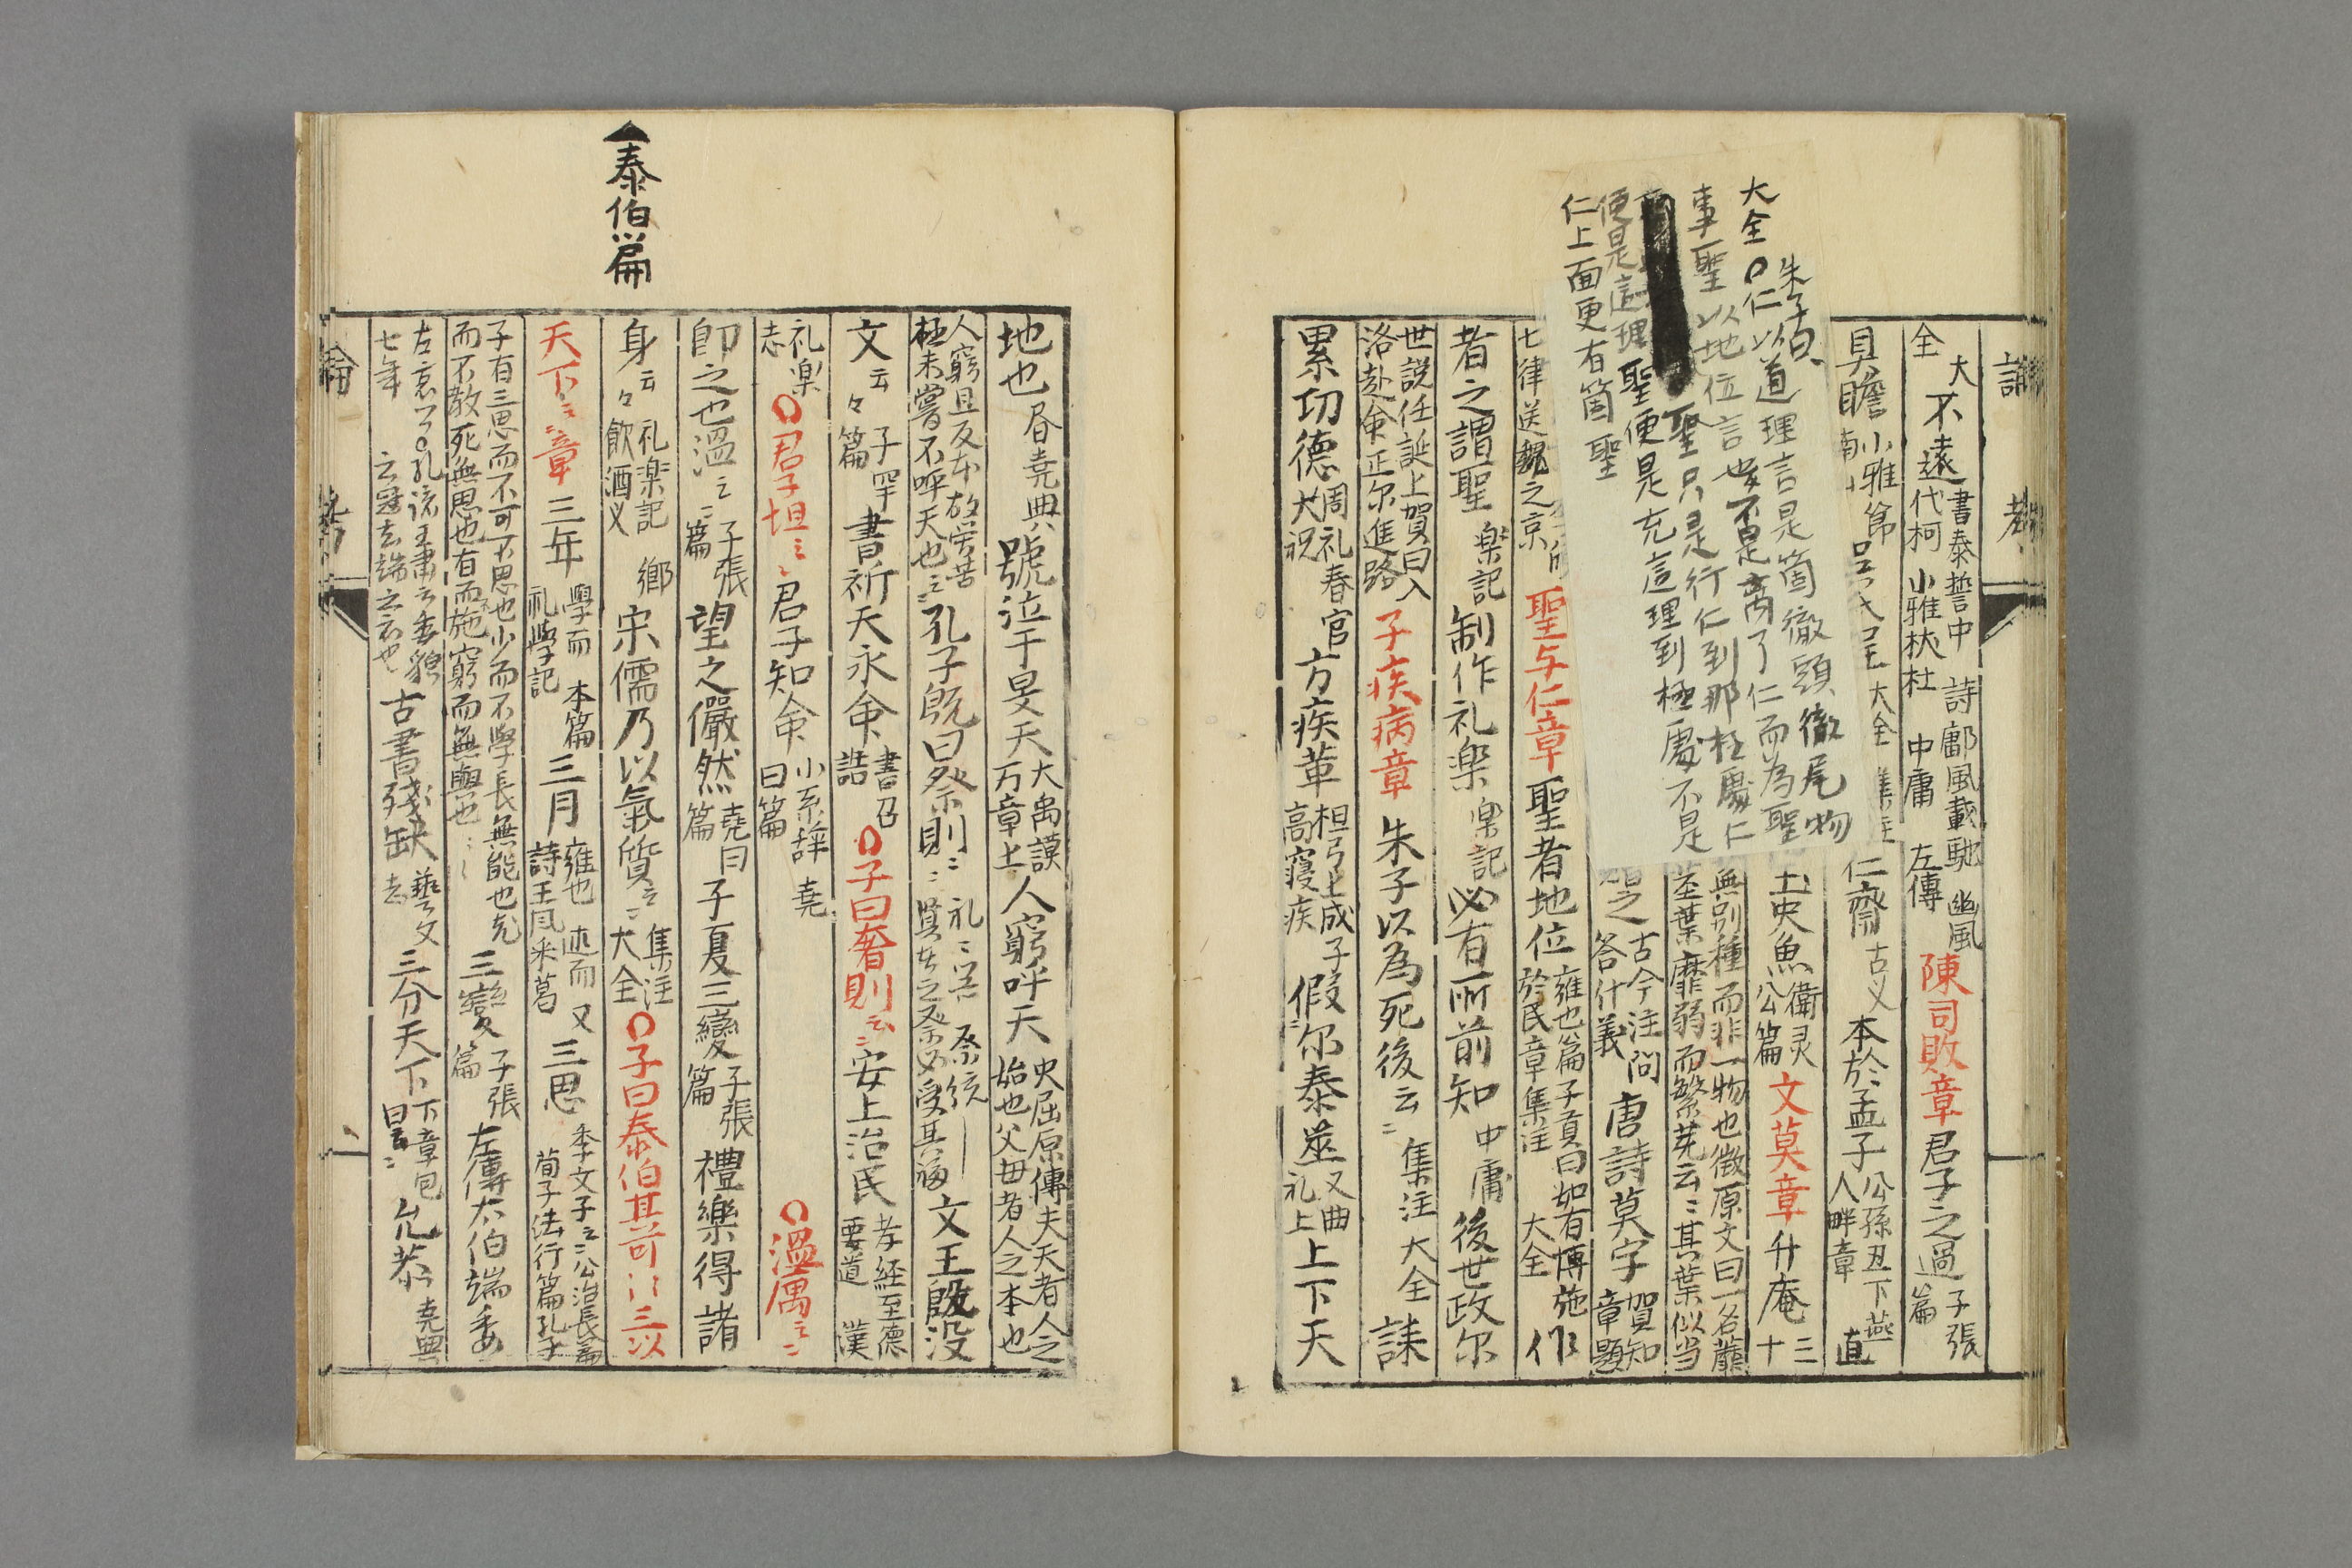 全 大 不遠 書泰誓中 代柯 詩鄘風載馳 小雅杕杜 中庸 豳風 左傳 陳司敗章 君子之過 子張篇
具瞻 小雅節南 大全 仁齋 古义 本於孟子 公孫丑下燕人畔章 直
史魚 衛灵公篇 文莫章 升庵 三十
無別種而非一物也徴原文曰一名蘼
茎葉靡弱而繁芜云〻其葉似当
古今注問答什義 唐詩莫字 賀知章題
七律送魏之京 聖与仁章 聖者地位 雍也篇子貢曰如有博施於民章集注 大全 作
者之謂聖 楽記 制作礼楽 楽記 必有所前知 中庸 後世政尔
世説任誕上賀曰入洛赴命正尔進路 子疾病章 朱子以為死後云〻 集注 大全 誄
累功德 周礼春官大祝 方疾革 檀弓上成子高寢疾 假尔泰筮 又曲礼上 上下天
大全 朱子曰
仁以道理言是箇徹頭徹尾物
事聖以地位言也不是离了仁而為聖
聖只是行仁到那极處仁
便是這理聖便是充這理到極處不是
仁上面更有箇聖
泰伯篇
地也 昏堯典 號泣于旻天 大禹謨 万章上 人窮呼天 史屈原傳夫天者人之始也父母者人之本也
人窮且反本故労苦極未嘗不呼天也〻 孔子既曰祭則〻 礼〻器 祭統 賢者之祭必受其福 文王既没
文云々 子罕篇 書祈天永命 書召誥 子曰奢則云〻 安上治民 孝経至德要道 漢
礼楽志 君子坦〻 君子知命 小系辞 堯曰篇 温厲〻
即之也温〻 子張篇 望之儼然 堯曰篇 子夏三變 子張篇 禮樂得諸
身云々 礼楽記 鄉飲酒义 宋儒乃以氣質〻 集注 大全 子曰泰伯其可〻三以
天下〻章 三年 學而 本篇 礼學記 三月 雍也 述而 又 詩王風采葛 三思 季文子〻公冶長篇 荀子法行篇孔子
子有三思而不可不思也少而不學長無能也老
而不教死無思也有而不施窮而無與也 三變 子張篇 左傳太伯端委
左哀七年 古書殘缺 藝文志 三分天下 下章包曰云〻 允恭 堯典